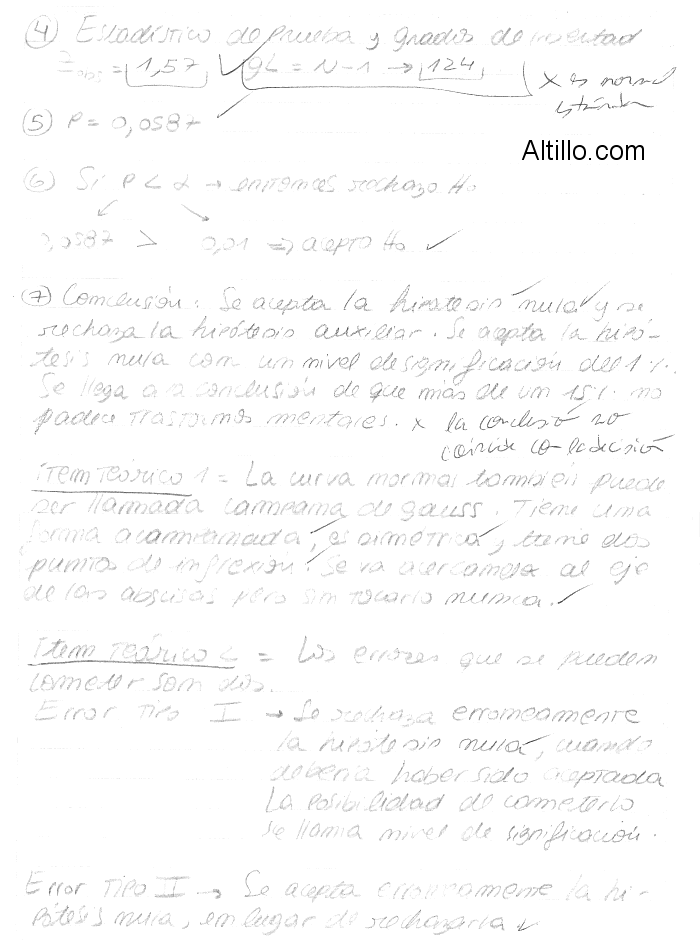 ④ Estadístico de prueba y grados de libertad
Z obs = 1,57 ✓ gL = N-1 → 124
x es normal
estándar
⑤ P = 0,0587
Altillo.com
⑥ Si P < α → entonces rechazo Ho
0,0587 > 0,01 ⇒ acepto Ho ✓
⑦ Conclusión: Se acepta la hipótesis nula y se
rechaza la hipótesis auxiliar. Se acepta la hipó-
tesis nula con un nivel de significación del 1%.
Se llega a la conclusión de que más de un 15% no
padece trastornos mentales. x la conclusión no
coincide con la decisión
ítem teórico 1 = La curva normal también puede
ser llamada campana de gauss. Tiene una
forma acampanada, es simétrica, y tiene dos
puntos de inflexión. Se va acercando al eje
de las abscisas pero sin tocarlo nunca. ✓
Item Teórico 2 = Los errores que se pueden
cometer son dos.
Error Tipo I → Se rechaza erroneamente
la hipótesis nula, cuando
debería haber sido aceptada
La posibilidad de cometerlo
se llama nivel de significación.
Error Tipo II → Se acepta erroneamente la hi-
pótesis nula, en lugar de rechazarla ✓